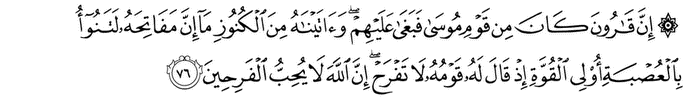 ۞ إِنَّ قَٰرُونَ كَانَ مِن قَوْمِ مُوسَىٰ فَبَغَىٰ عَلَيْهِمْ ۖ وَءَاتَيْنَٰهُ مِنَ ٱلْكُنُوزِ مَآ إِنَّ مَفَاتِحَهُۥ لَتَنُوٓأُ
بِٱلْعُصْبَةِ أُو۟لِى ٱلْقُوَّةِ إِذْ قَالَ لَهُۥ قَوْمُهُۥ لَا تَفْرَحْ ۖ إِنَّ ٱللَّهَ لَا يُحِبُّ ٱلْفَرِحِينَ ٧٦